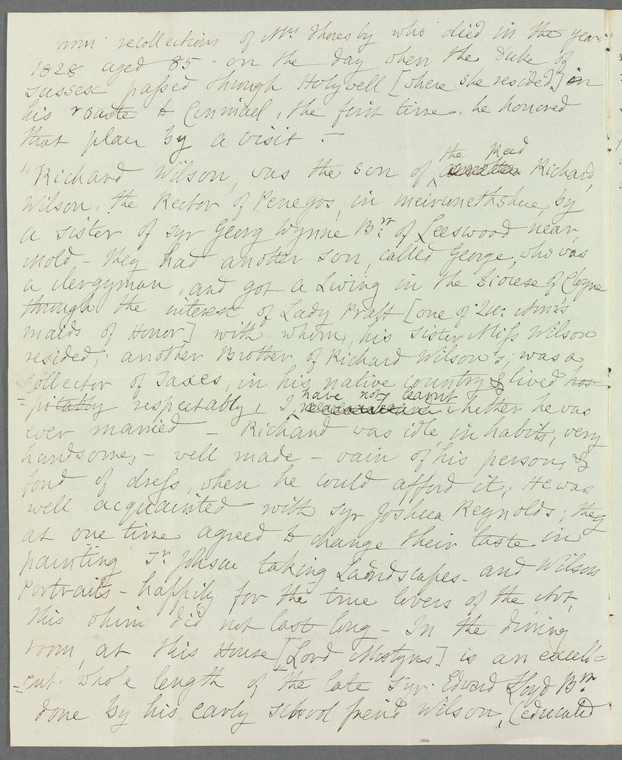 recollections of Mrs Thoresby who died in the year
1828 aged 85 - on the day when the Duke of
Sussex passed through Holywell [where she resided,] in
his route to Cinmael, the first time he honored
that place by a visit -
"Richard Wilson, was the son of the Red Richard
Wilson, the Rector of Penegos, in meirionethshire, by
a sister of Syr Georg Wynne Brt of Leeswood near
mold - they had another son, called George, who was
a clergyman, and got a Living in the Diocese of Cloyne
through the interest of Lady Pratt [one of Qu: Ann's
maids of Honor] with whom, his sister Miss Wilson
resided; another Brother of Richard Wilson's, was a
Collector of Taxes, in his native country & lived hos-
-pitably respectably, I have not learnt whether he was
ever married - Richard was idle in habits, very
handsome, - well made - vain of his person, &
fond of dress, when he could afford it, He was
well acquainted with Syr Joshua Reynolds; they
at one time agreed to change their taste in
painting Sr Joshua taking Landscapes - and Wilson
Portraits - happily for the true lovers of the Art,
this whim did not last long - In the dining
room, at this House [Lord Mostyns] is an excell=
=ent whole length of the late Syr Edward Lloyd Brt
done by his early school freind Wilson, (educated